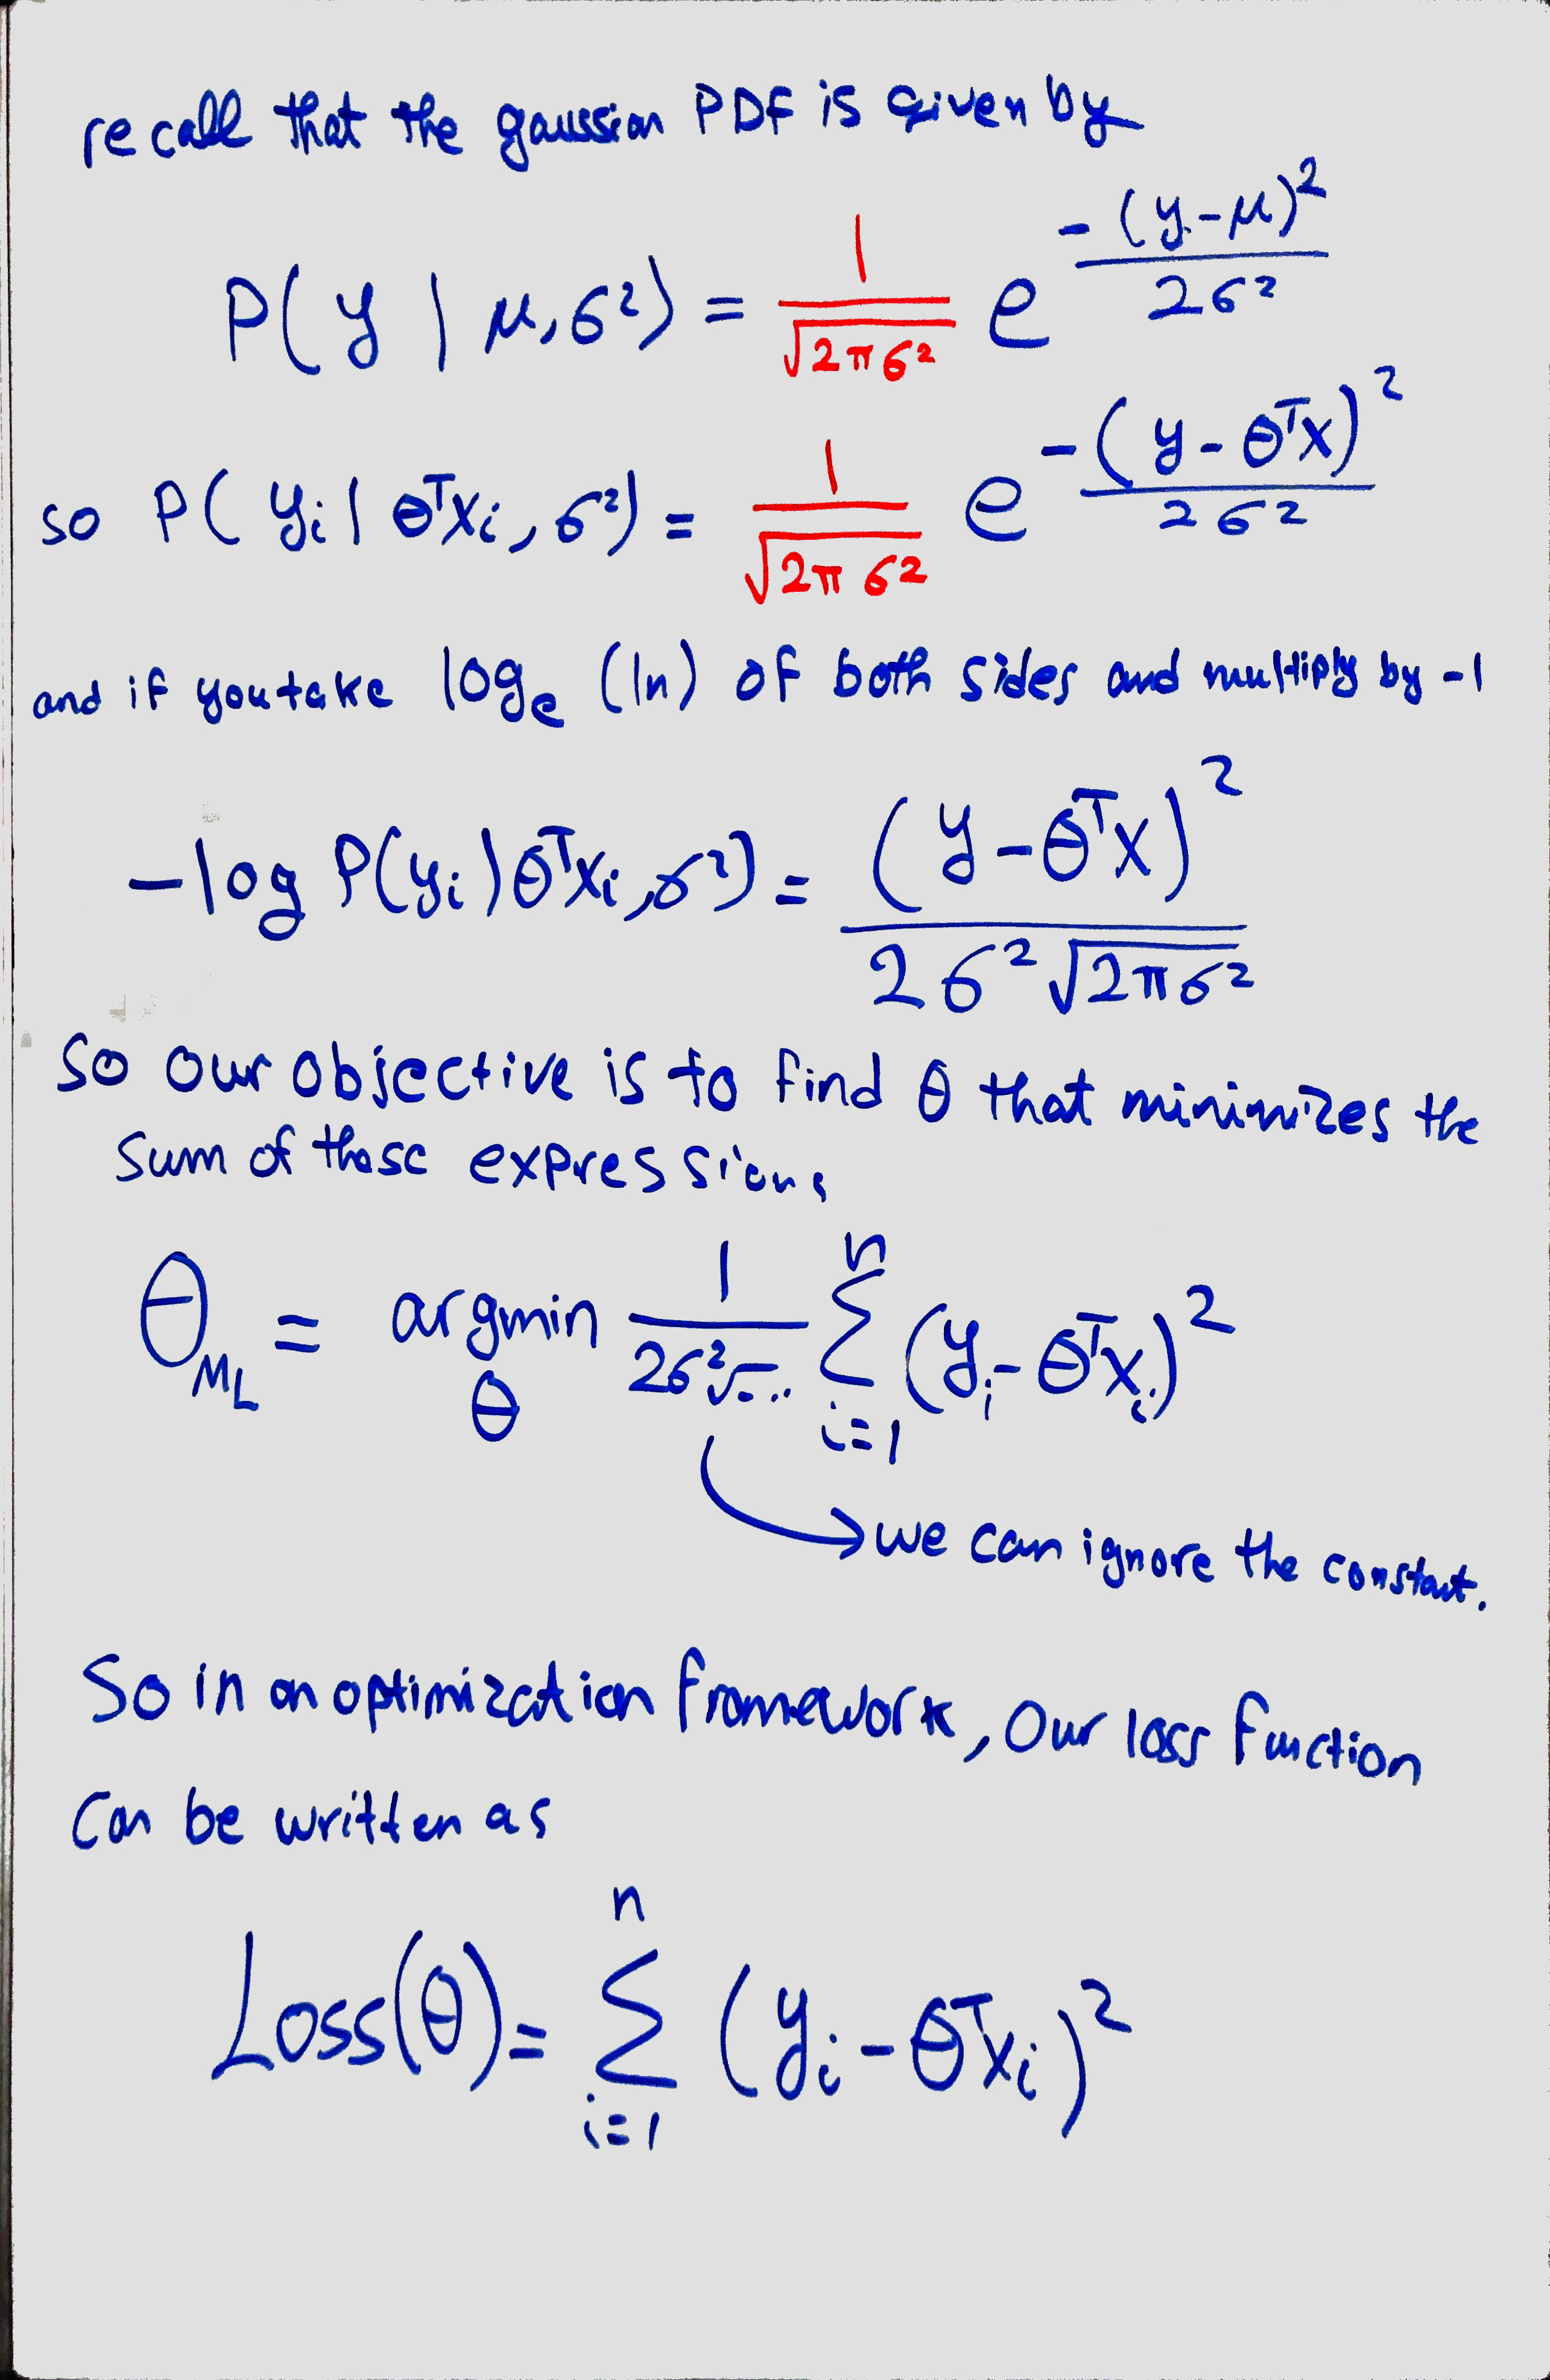 recall that the gaussian PDF is given by
P(y | μ, σ²) = 1/√(2πσ²) e^(-(y-μ)²/2σ²)
so P(yᵢ | θᵀxᵢ, σ²) = 1/√(2πσ²) e^(-(y-θᵀx)²/2σ²)
and if you take logₑ (ln) of both sides and multiply by -1
-log P(yᵢ | θᵀxᵢ, σ²) = (y-θᵀx)² / 2σ²√(2πσ²)
So our objective is to find θ that minimizes the
sum of those expressions
θ_ML = argmin_θ 1/(2σ²√...) Σ_{i=1}^{n} (yᵢ-θᵀxᵢ)²
→ we can ignore the constant.
So in an optimization framework, our loss function
can be written as
Loss(θ) = Σ_{i=1}^{n} (yᵢ-θᵀxᵢ)²